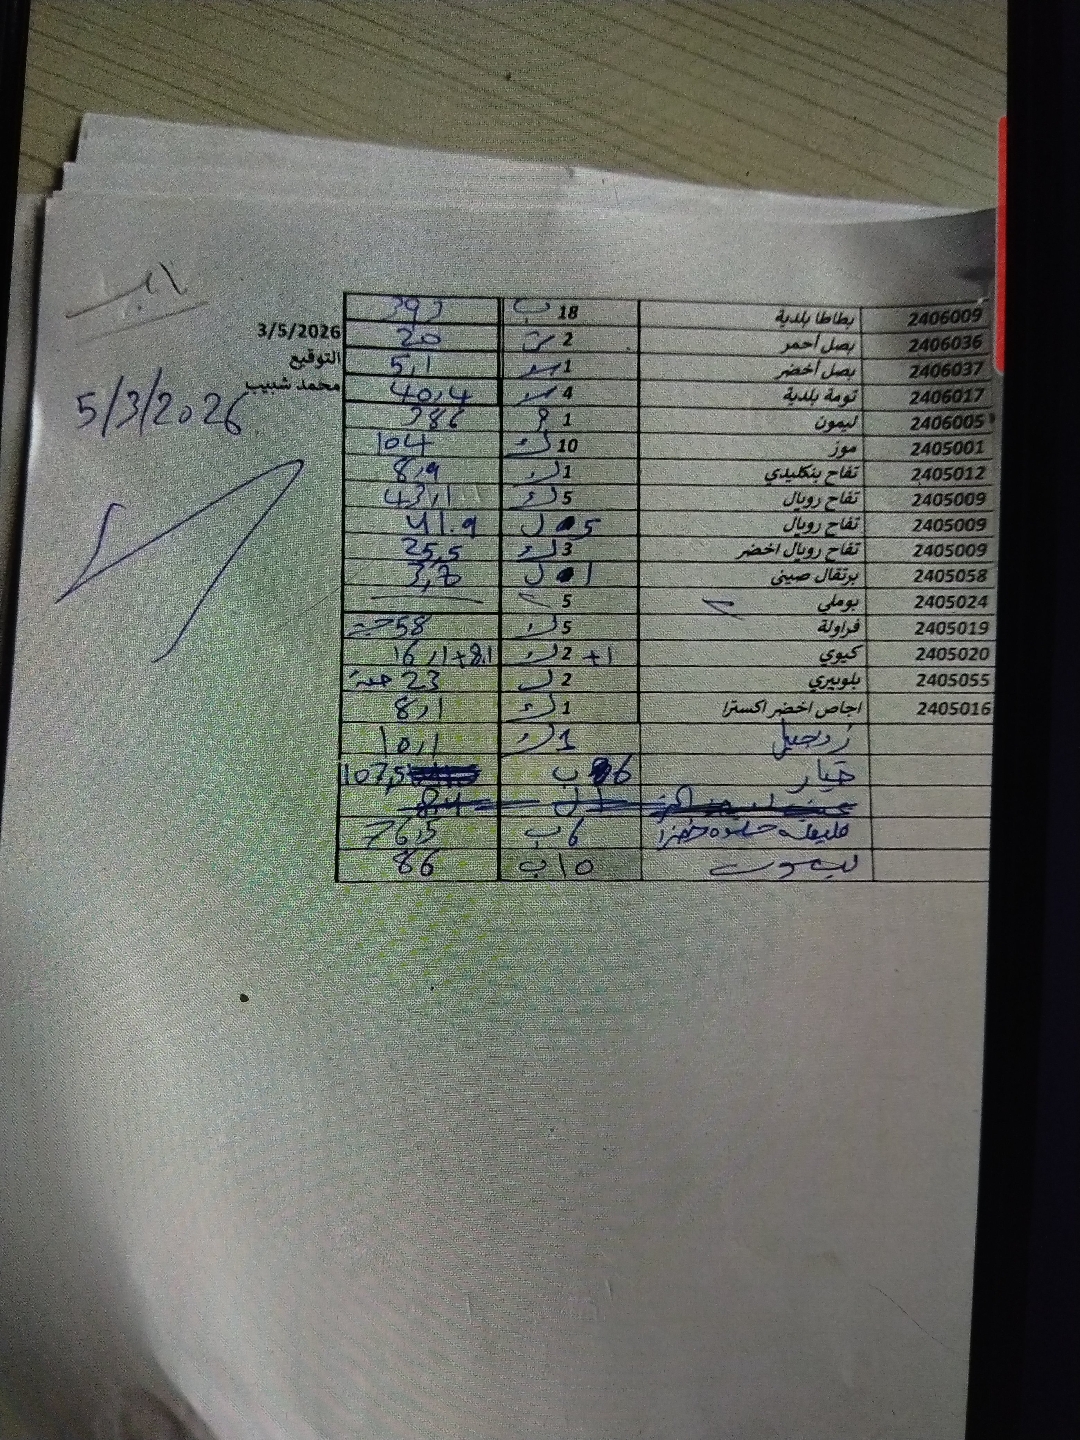 2406009 بطاطا بلدية 18 ب 393
2406036 بصل احمر 2 20
2406037 بصل أخضر 1 5,1
2406017 تومة بلدية 4 40,4
2406005 ليمون 1 386
2405001 موز 10 ك 104
2405012 تفاح بنكليدي 1 ك 8,9
2405009 تفاح رويال 5 ك 43,1
2405009 تفاح رويال 5 ل 41.9
2405009 تفاح رويال اخضر 3 ك 25,5
2405058 برتقال صيني 1 ل
2405024 بوملي 5
2405019 فراولة 5 ك 58
2405020 كيوي 2 +1 ك 16,1+8.1
2405055 بلوبيري 2 ل 23 حبة
2405016 اجاص اخضر اكسترا 1 ك 8,1
زنجبيل 1 ك 10,1
خيار 6 ب 107,5
فليفلة حلوة خضرا 6 ب 76,5
10 ب 86
3/5/2026
التوقيع
محمد شبيب
5/3/2026